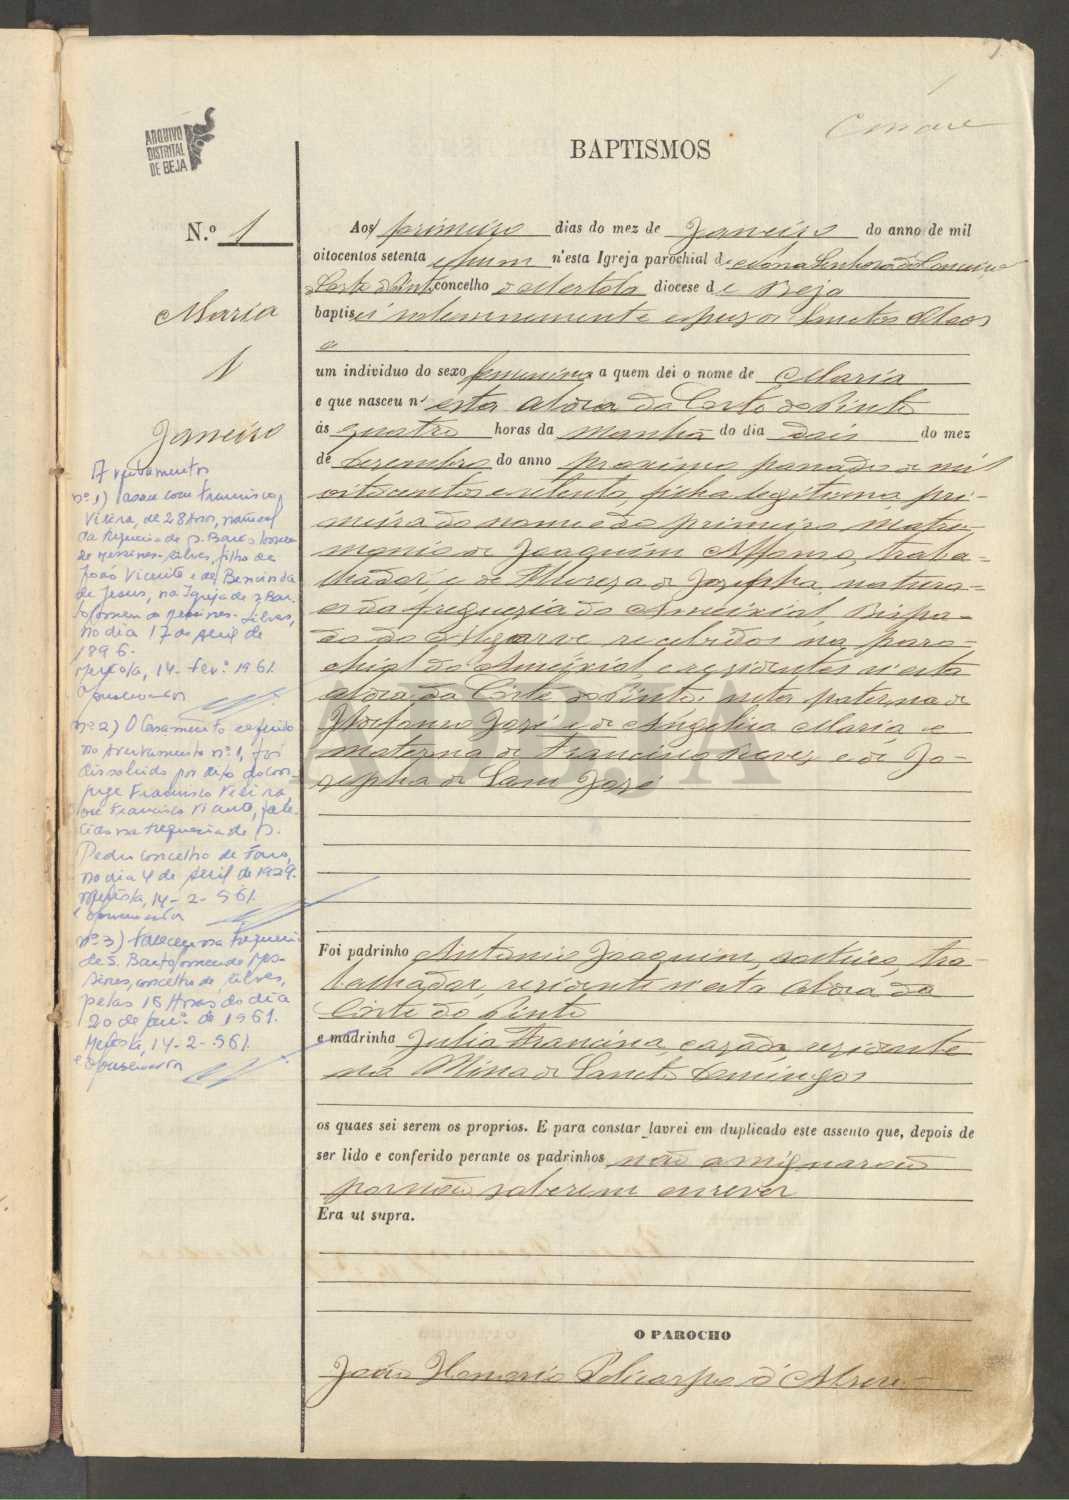 1
Connive
ARQUIVO
DISTRITAL
DE BEJA
BAPTISMOS
N.º 1
Maria
1
Janeiro
Aos primeiro dias do mez de Janeiro do anno de mil
oitocentos setenta e hum n'esta Igreja parochial de Nossa Senhora da Conceição
da Corte do Pinto concelho de Mertola diocese de Beja
baptisei solemnemente e puz os Sanctos Oleos
a
um individuo do sexo femenino a quem dei o nome de Maria
e que nasceu n'esta aldeia da Corte do Pinto
ás quatro horas da manhã do dia dois do mez
de Dezembro do anno proximo passado de mil
oitocentos e setenta, filha legitima, pri-
meira do nome e do primeiro matri-
monio de Joaquim Affonso, traba-
lhador, e de Thereza de Jozepha, natura-
es da freguezia do Ameixial, Bispa-
do do Algarve, recebidos na paro-
chial do Ameixial, e rezidentes n'esta
aldeia da Corte do Pinto, neta paterna de
Ildefonso José e de Angelica Maria, e
materna de Francisco Peres, e de Jo-
zepha de Sam José
Foi padrinho Antonio Joaquim, solteiro, tra-
balhador, rezidente n'esta aldeia da
Corte do Pinto
e madrinha Julia Francisca, cazada, rezidente
na Mina de Sancto Domingos
os quaes sei serem os proprios. E para constar lavrei em duplicado este assento que, depois de
ser lido e conferido perante os padrinhos não assignarão
por não saberem escrever
Era ut supra.
O PAROCHO
João Honorio Policarpo d'Abreu
Averbamentos
nº 1) Casou com Francisco
Vieira, de 28 anos, natural
da freguesia de S. Bartolomeu
de Messines - Silves, filho de
João Vicente e de Benvinda
de Jesus, na Igreja de S. Bar-
tolomeu de Messines - Silves,
no dia 17 de Abril de
1896.
Mertola, 14 - Fev.º 1961.
O Conservador
nº 2) O Casamento referido
no averbamento nº 1, foi
dissolvido por obito do con-
juge Francisco Vieira,
ou Francisco Vicente, fale-
cido na freguesia de S.
Pedro concelho de Faro,
no dia 4 de Abril de 1929.
Mertola, 14 - 2 - 961.
O Conservador
nº 3) Faleceu na freguesia
de S. Bartolomeu de Mes-
sines, concelho de Silves,
pelas 16 horas do dia
20 de Jan.º de 1961.
Mertola, 14 - 2 - 961.
O Conservador